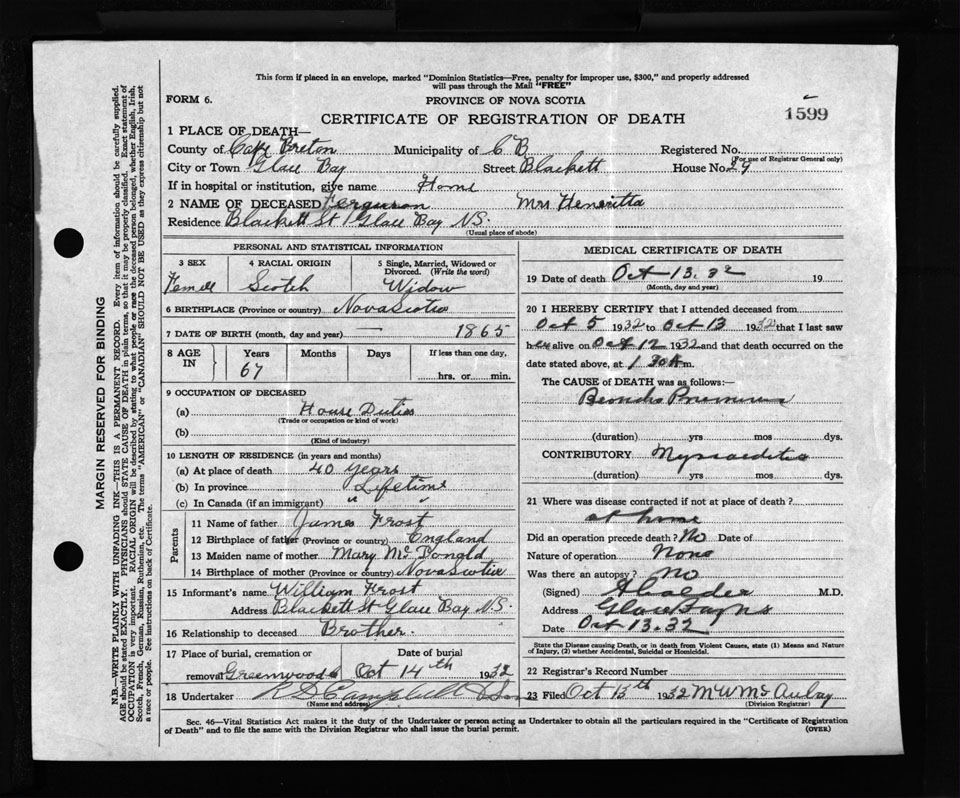 This form if placed in an envelope, marked "Dominion Statistics—Free, penalty for improper use, $300," and properly addressed
will pass through the Mail "FREE"
FORM 6.
PROVINCE OF NOVA SCOTIA
1599
CERTIFICATE OF REGISTRATION OF DEATH
1 PLACE OF DEATH—
County of Cape Breton Municipality of C B Registered No.
(For use of Registrar General only)
City or Town Glace Bay Street Blackett House No. 29
If in hospital or institution, give name Home
2 NAME OF DECEASED Ferguson Mrs Henrietta
Residence Blackett St Glace Bay NS.
(Usual place of abode)
PERSONAL AND STATISTICAL INFORMATION
3 SEX 4 RACIAL ORIGIN 5 Single, Married, Widowed or
Divorced. (Write the word)
Femell Scotch Widow
6 BIRTHPLACE (Province or country) Nova Scotia
7 DATE OF BIRTH (month, day and year) — 1865
8 AGE IN Years Months Days If less than one day,
67 hrs. or min.
9 OCCUPATION OF DECEASED
(a) House Duties
(Trade or occupation or kind of work)
(b)
(Kind of industry)
10 LENGTH OF RESIDENCE (in years and months)
(a) At place of death 40 years
(b) In province Lifetime
(c) In Canada (if an immigrant) " "
Parents
11 Name of father James Frost
12 Birthplace of father (Province or country) England
13 Maiden name of mother Mary McDonald
14 Birthplace of mother (Province or country) Nova Scotia
15 Informant's name William Frost
Address Blackett St Glace Bay NS.
16 Relationship to deceased Brother.
17 Place of burial, cremation or Date of burial
removal Greenwood Oct 14th 1932
18 Undertaker R D Campbell Son
(Name and address)
MEDICAL CERTIFICATE OF DEATH
19 Date of death Oct 13. 32 19
(Month, day and year)
20 I HEREBY CERTIFY that I attended deceased from
Oct 5 1932 to Oct 13 1932 that I last saw
her alive on Oct 12 1932 and that death occurred on the
date stated above, at 1 30 A m.
The CAUSE OF DEATH was as follows:—
Broncho Pneumonia
(duration) yrs mos dys.
CONTRIBUTORY Myocarditis
(duration) yrs mos dys.
21 Where was disease contracted if not at place of death?
at home
Did an operation precede death? No Date of
Nature of operation None
Was there an autopsy? No
(Signed) M.D.
Address Glace Bay NS
Date Oct 13. 32
State the Disease causing Death, or in death from Violent Causes, state (1) Means and Nature
of Injury, (2) whether Accidental, Suicidal or Homicidal.
22 Registrar's Record Number
23 Filed Oct 15th 1932 McAulay
(Division Registrar)
Sec. 46—Vital Statistics Act makes it the duty of the Undertaker or person acting as Undertaker to obtain all the particulars required in the "Certificate of Registration
of Death" and to file the same with the Division Registrar who shall issue the burial permit. (OVER)
MARGIN RESERVED FOR BINDING
N.B.—WRITE PLAINLY WITH UNFADING INK—THIS IS A PERMANENT RECORD. Every item of information should be carefully supplied.
AGE should be stated EXACTLY. PHYSICIANS should STATE CAUSE OF DEATH in plain terms, so that it may be properly classified. Exact statement of
OCCUPATION is very important. RACIAL ORIGIN will be described by stating to what people or race the deceased person belonged, whether English, Irish,
Scotch, French, German, Russian, Ruthenian, etc. The terms "AMERICAN" or "CANADIAN" SHOULD NOT BE USED as they express citizenship but not
a race or people. See instructions on back of Certificate.